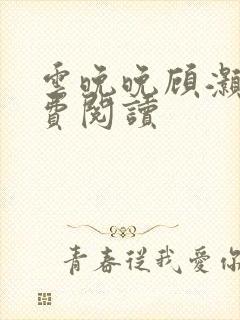 雲晚晚顾灏
費閱讀
青春從我愛你